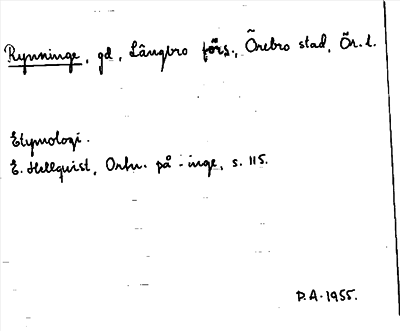 Rynninge, gd, Längbro förs., Örebro stad, Ör. l.
Etymologi.
E. Hellquist, Ortn. på -inge, s. 115.
D.A. 1955.